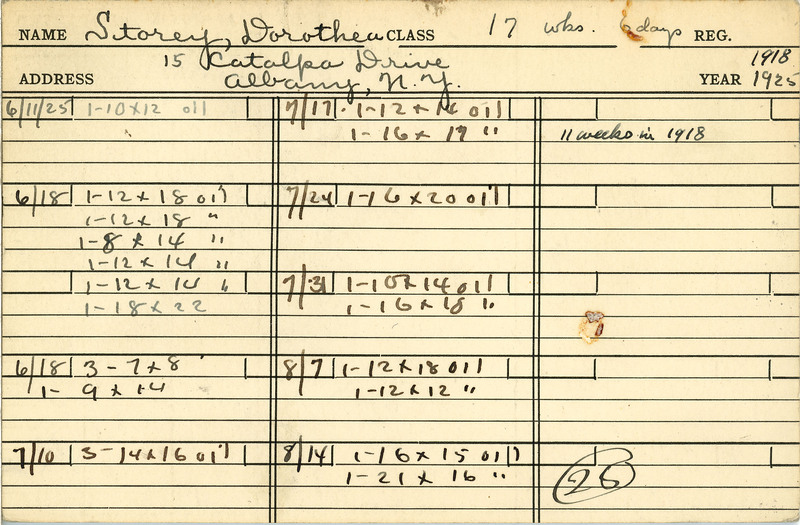 NAME Storey, Dorothea CLASS 17 wks. 6 days REG.
15 Catalpa Drive 1918
ADDRESS Albany, N.Y. YEAR 1925
6/11/25 1-10x12 oil
6/18 1-12 x 18 oil
1-12 x 18 "
1-8 x 14 "
1-12 x 14 "
1-12 x 14 "
1-18 x 22
6/18 3 - 7 x 8
1- 9 x 14
7/10 3-14x16 oil
7/17 1-12 x 14 oil
1-16 x 17 "
7/24 1-16 x 20 oil
7/31 1-10x14 oil
1-16 x 18 "
8/7 1-12x18 oil
1-12x12 "
8/14 1-16 x 15 oil
1-21 x 16 "
11 weeks in 1918
26